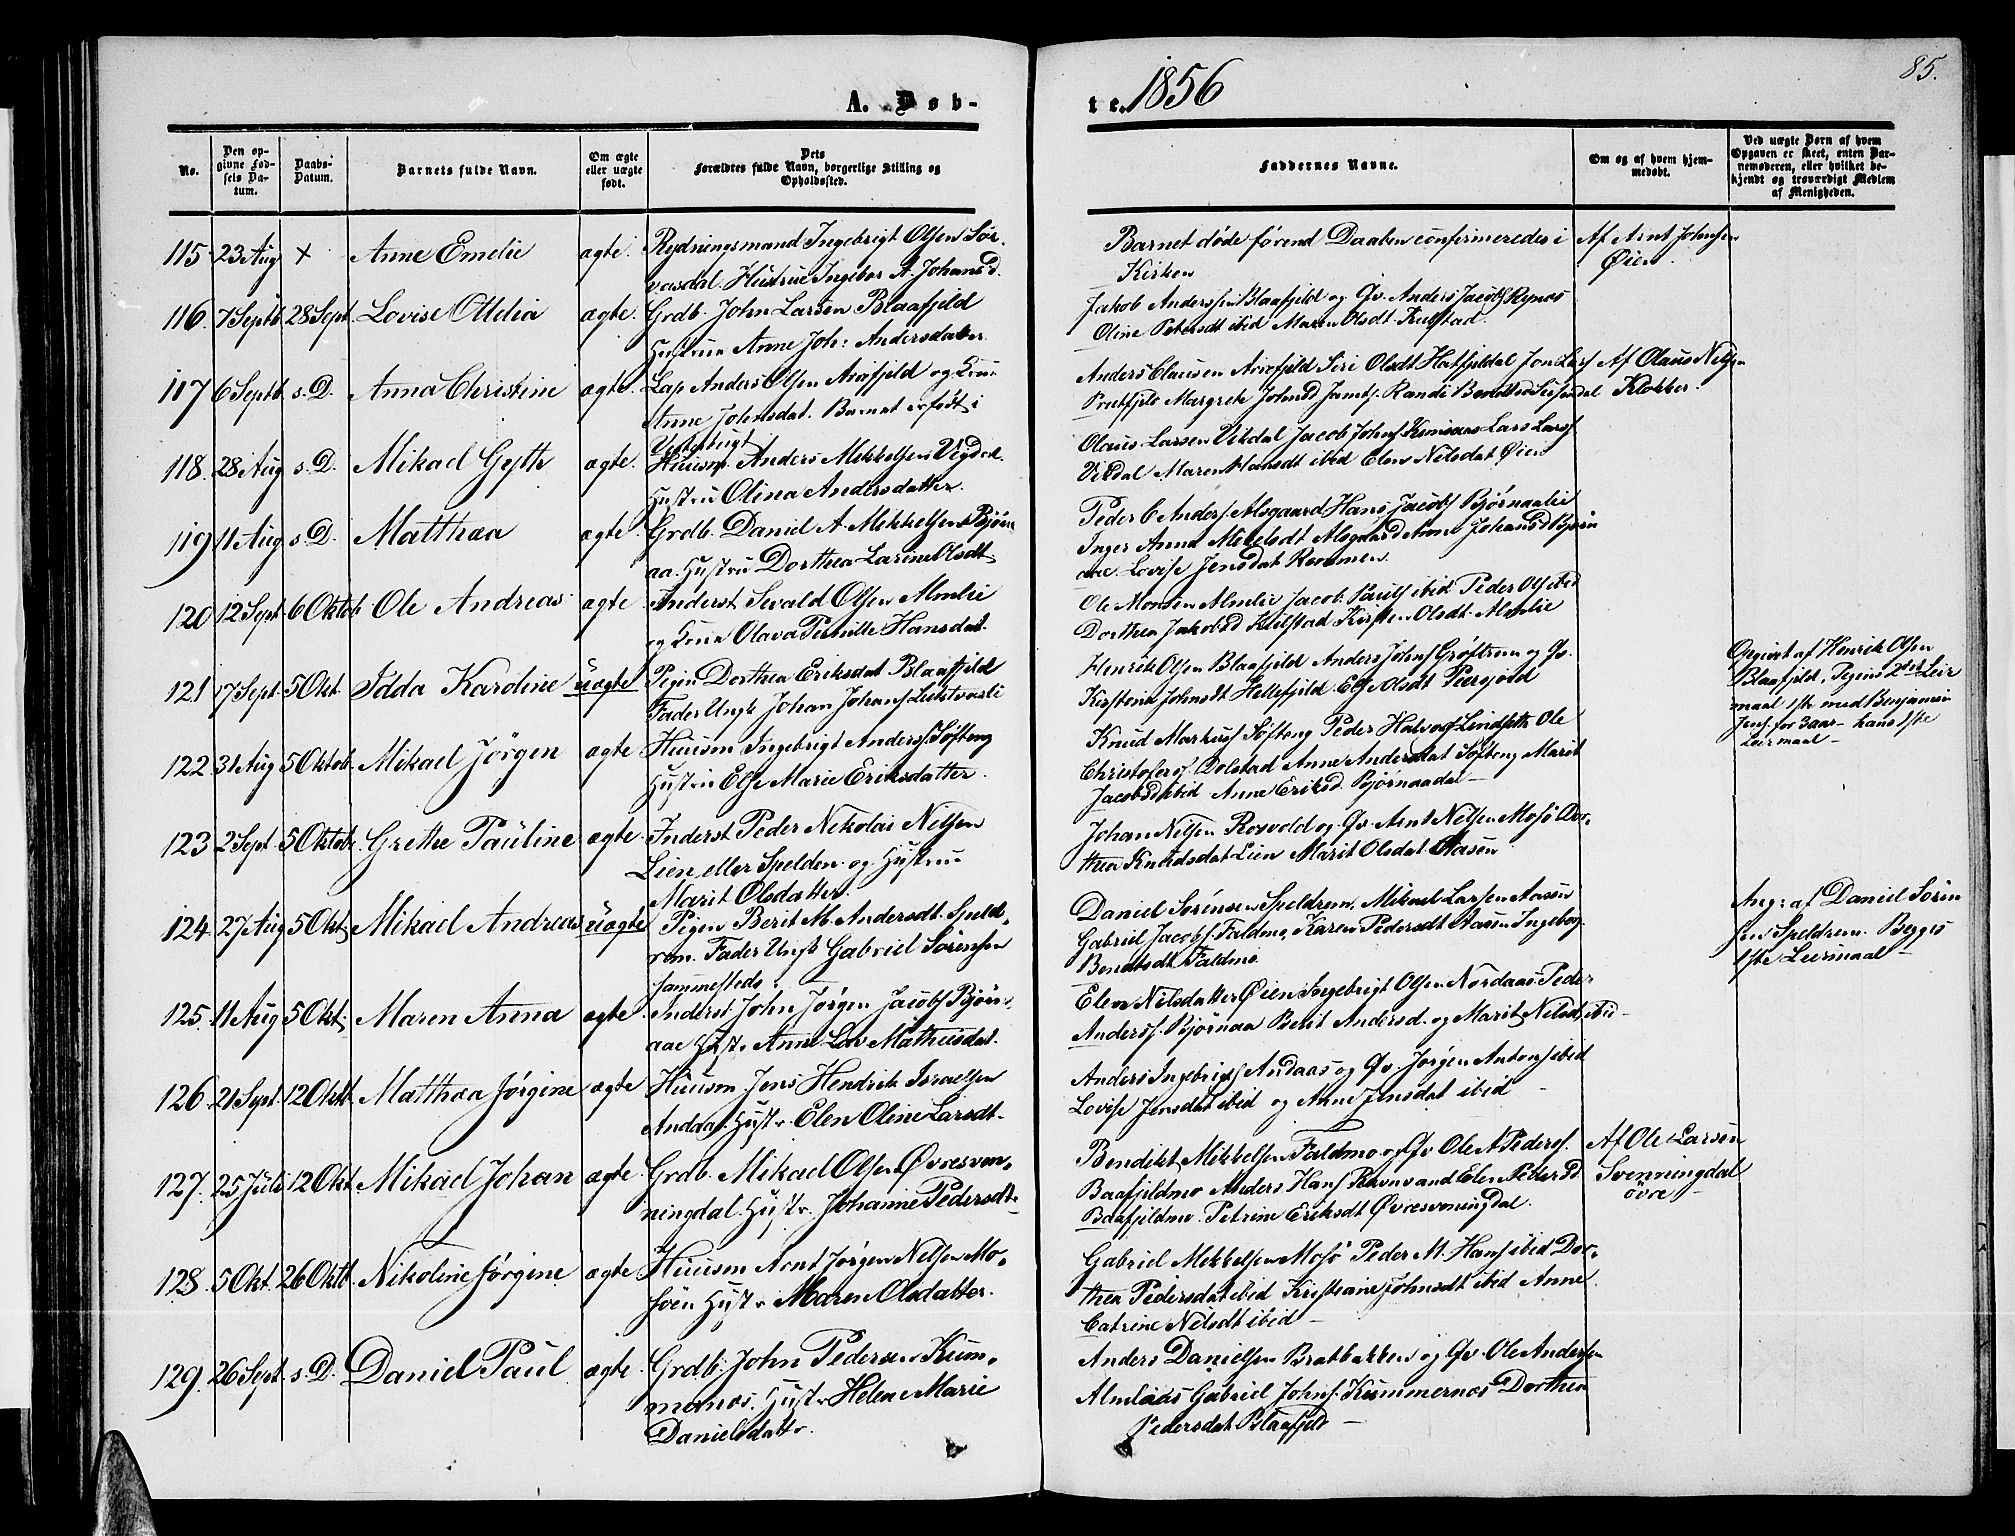 85.
A. Døb-
te. 1856
No.
Den op-
givne Fød-
sels Da-
tum.
Daabs-
Datum.
Barnets fulde Navn.
Om ægte
eller uægte
født.
Dets
Forældres fulde Navn, borgerlige Stilling og
Opholdssted.
Faddernes Navne.
Om og af hvem hjem-
medøbt.
Ved uægte Børn af hvem
Opgaven er skeet, enten Bar-
nemoderen, eller hvilket be-
kjendt og troværdigt Medlem
af Menigheden.
115 23 Aug + Anne Emelie ægte. Rydningsmand Ingebrigt Olsen Sør-
vasdal. Hustrue Ingebor A. Johansd.
Barnet døde førend Daaben confirmeredes i
Kirken
Af Arnt Johnsen
Øien
116. 7 Septb. 28 Sept. Lovise Ottelia ægte. Grdb. John Larsen Blaafjeld
Hustrue Anne Joh: Andersdatter
Jakob Anderssen Blaafjeld og Qv. Anders Jacobs Rynes
Oline Petersdt ibid Maren Olsdt Kulstad.
117 6 Septb. s.D. Anna Christine ægte. Lap Anders Olsen Avefjeld og Kone
Anne Johnsdat. Barnet er født i
Anders Clausen Avefjeld Siri Olsdt Hatfjeldal Jon Lars
Margrete Johnsd Randi
Af Olaus Nilsen
Klokker.
118. 28 Aug s.D. Mikael Gyth ægte. Huusm. Anders Mikkelsen Vigdal.
Hustru Olina Andersdatter.
Olaus Larsen Vikdal Jacob Johns Lars Lars
Vikdal Maren Hansdt ibid Elen Nilsdat Øien
119 11 Aug s.D. Matthea ægte. Grdb. Daniel A. Mikkelsen Bjørn
aa. Hustru Dorthea Larine Olsdt.
Peder C Anders Alsgaard Hans Jacobs Bjørnaalie
Inger Anna Mikelsdt Alsgaard Anne Johansd Bjørn
aae. Lovise Jensdat Remmen.
120 12 Sept 6 Oktob Ole Andreas ægte Inderst Sevald Olsen Almlie
og Kone Olava Pernille Hansdat.
Ole Monsen Almlie Jacob Pauls ibid Peder Ols ibid
Dorthea Jakobsd Kulstad Kirsten Olsdt. Almlie
121 17 Sept 5 Okt. Idda Karoline uægte Pigen Dorthea Eriksdat Blaafjeld
Fader Ungk Johan Johans
Henrik Olsen Blaafjeld Anders Johns Grøftrem og Qv.
Kirstine Johnsdt Hellefjeld Else Olsdt
Opgivet af Henrik Olsen
Blaafjeld, Pigens 2det Leir
maal 1ste med Benjamin
Jens. for 3 aar – hans 1ste
Leirmaal –
122. 31 Aug 5 Oktob. Mikael Jørgen ægte Huusm Ingebrigt Anders Søfteng
Hustru Else Marie Eriksdatter.
Knud Markus Søfteng Peder Halvors Lindseth Ole
Christofers Dolstad Anne Andersdat Søfteng Marit
Jacobsd ibid Anne Eriksd. Bjørnaadal –
123 2 Sept 5 Oktob. Grethe Pauline ægte. Inderst Peder Nikolai Nilsen
Lien eller Spelden og Hustrue
Marit Olsdatter.
Johan Nilsen Rosvold og Qv. Arnt Nilsen Mosø Dor-
thea Knudsdat Lien Marit Olsdat Aasen
124. 27 Aug 5 Okt. Mikael Andreas uægte Pigen Berit M. Andersdt. Speld-
rem. Fader Ungk Gabriel Sørensen
sammesteds.
Daniel Sørensen Speldrem, Mikael Larsen Aasen
Gabriel Jacobs. Faldmo, Karen Pedersdt Aasen Ingebor
Bendtsdt Faldmo.
Ang: af Daniel Søren
sen Speldrem. Begges
1ste Leirmaal –
125. 11 Aug 5 Okt. Maren Anna ægte. Inderst John Jørgen Jacobs Bjørn-
aae Hust. Anne Lov Mathiasdat.
Elen Nilsdatter Øien Ingebrigt Olsen Nordaas Peder
Anders. Bjørnaa Berit Andersd. og Marit Nilsdt, ibid –
126. 21 Sept 12 Oktb. Matthea Jørgine ægte Huusm Jens Hendrik Israelsen
Andaas. Hust. Elen Oline Larsdt.
Anders Ingebrigts Andaas og Qv. Jørgen Antons ibid
Lovise Jensdat ibid og Anne Jensdat ibid –
127. 25 Juli 12 Okt. Mikael Johan ægte. Grdb. Mikael Olsen Øvresven-
ningdal. Hust. Johanne Pedersdt.
Bendikt Mikkelsen Faldmo og Qv Ole A Peders.
Baafjeldmo Anders Hans Elen Pedersd
Baafjeldmo. Petrine Eriksdt Øvresvenningdal.
Af Ole Larsen
Svenningdal
øvre –
128. 5 Okt. 26 Oktb. Nikoline Jørgine ægte Huusm Arnt Jørgen Nilsen Mo-
søen Hust. Maren Olsdatter.
Gabriel Mikkelsen Mosø Peder M. Hans ibid Dor-
thea Pedersdat ibid Kristiane Johnsdt ibid Anne
Catrine Nilsdt ibid –
129. 26 Sept. s.D. Daniel Paul ægte Grdb. John Pedersen Kum-
mernes. Hust. Helene Marie
Danielsdatt.
Anders Danielsen Bratbakken og Qv. Ole Andersen
Almlaas Gabriel Johns. Kummernes Dorthea
Pedersdat Blaafjeld –